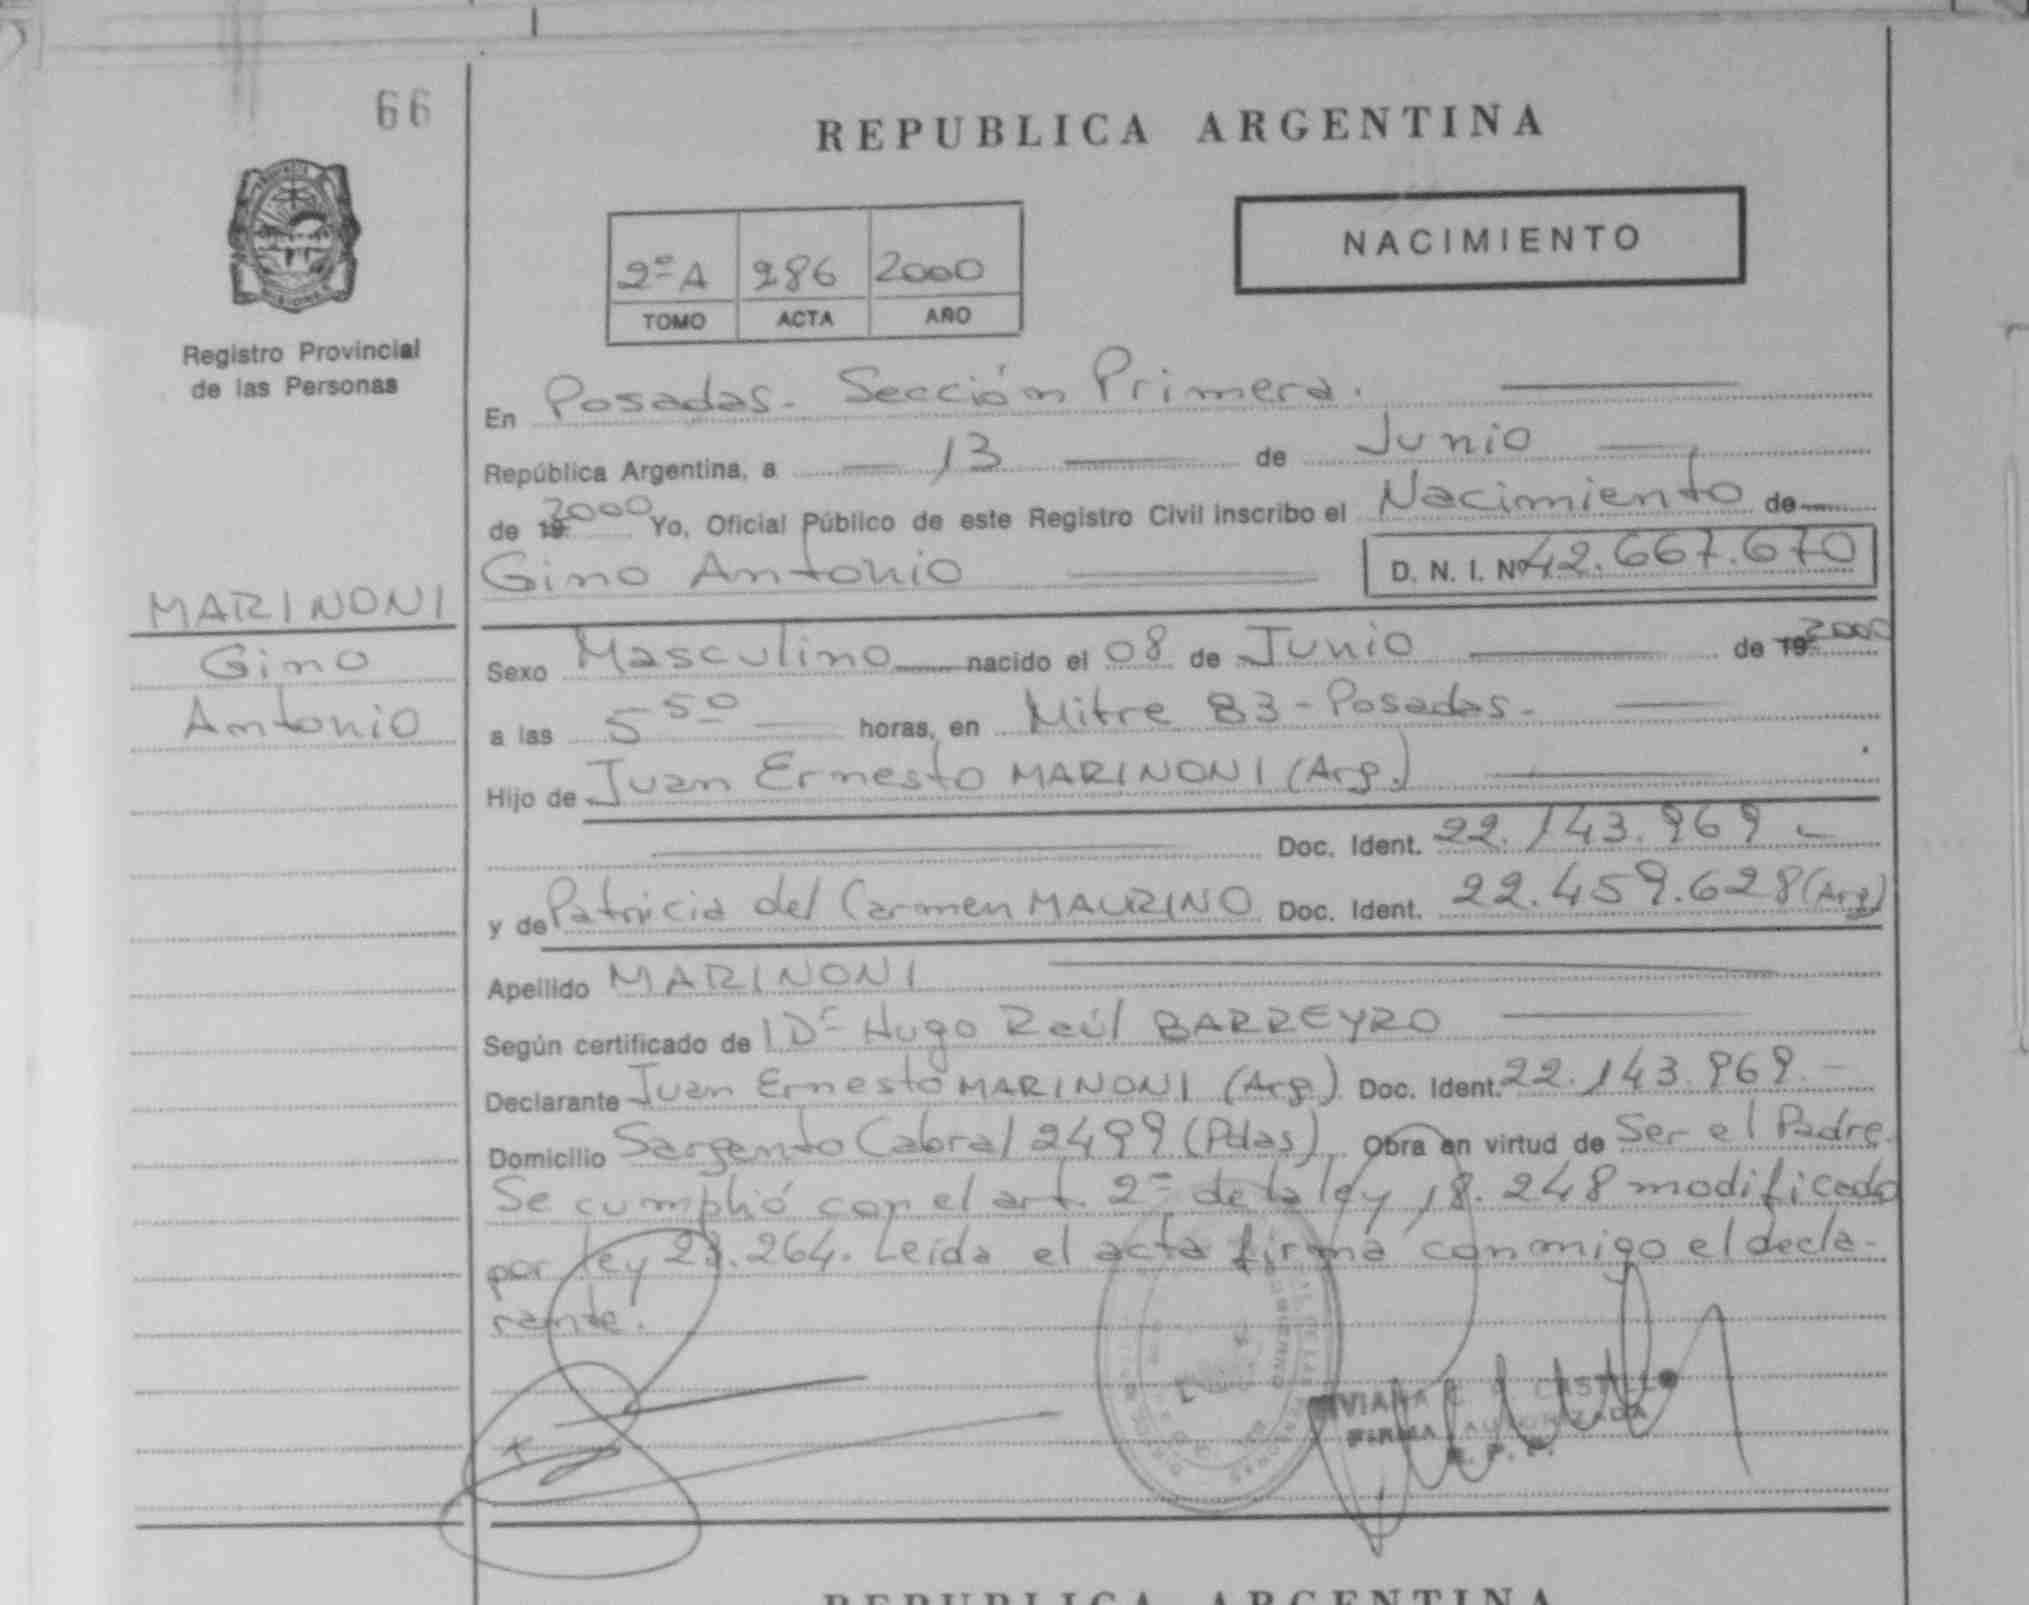 66
REPUBLICA ARGENTINA
NACIMIENTO
2º A 286 2000
TOMO ACTA AÑO
Registro Provincial
de las Personas
En Posadas. Sección Primera.
República Argentina, a 13 de Junio
de 19 2000 Yo, Oficial Público de este Registro Civil inscribo el Nacimiento de
Gino Antonio D. N. I. Nº 42.667.670
MARINONI
Gino
Antonio
Sexo Masculino nacido el 08 de Junio de 19 2000
a las 5 50 horas, en Mitre 83 - Posadas.
Hijo de Juan Ernesto MARINONI (Arg.)
Doc. Ident. 22.143.969
y de Patricia del Carmen MAURINO Doc. Ident. 22.459.628 (Arg)
Apellido MARINONI
Según certificado de Dr Hugo Raúl BARREYRO
Declarante Juan Ernesto MARINONI (Arg.) Doc. Ident. 22.143.969.
Domicilio Sargento Cabral 2499 (Pdas) Obra en virtud de Ser el Padre.
Se cumplió con el art. 2º de la ley 18.248 modificado
por ley 23.264. Leída el acta firma conmigo el decla-
rante.
FIRMA AUTORIZADA
REPUBLICA ARGENTINA